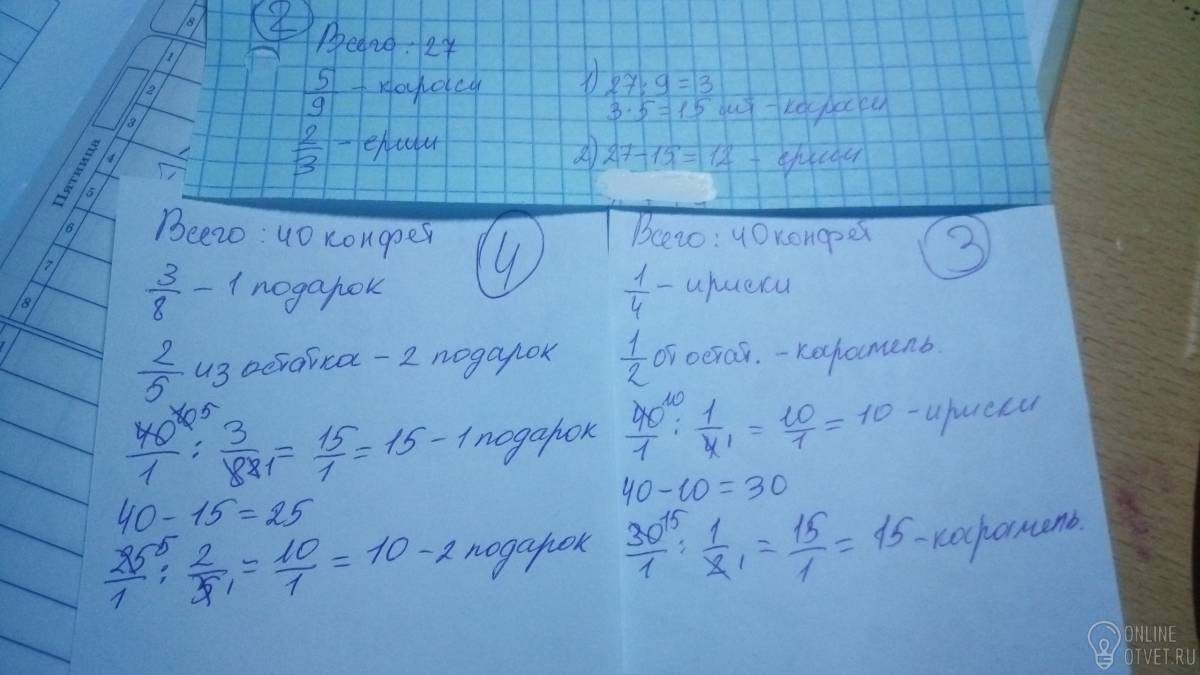 2
Всего : 27
5/9 - караси
2/3 - ерши
1) 27:9=3
3·5=15 шт - караси
2) 27-15=12 - ерши
Всего : 40 конфет
4
3/8 - 1 подарок
2/5 из остатка - 2 подарок
40/1 : 3/8 = 15/1 = 15 - 1 подарок
40-15=25
25/1 : 2/5 = 10/1 = 10 - 2 подарок
Всего : 40 конфет
3
1/4 - ириски
1/2 от остат. - карамель.
40/1 : 1/4 = 10/1 = 10 - ириски
40-10=30
30/1 : 1/2 = 15/1 = 15 - карамель.
Пятница
1
2
3
4
5
6
7
8
8
ONLINE
OTVET.RU